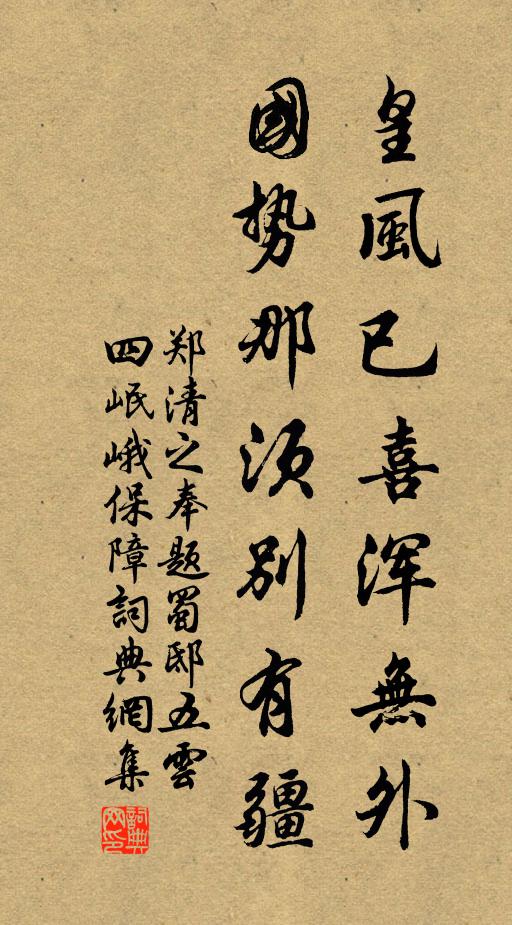 皇風已喜渾無外
國勢那須別有疆
郑清之奉題蜀邸五雲
四岷峨保障詞典網集
詞典網印